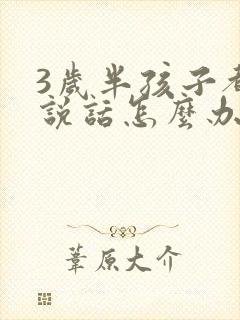 3歲半孩子
説話怎麼办
葦原大介